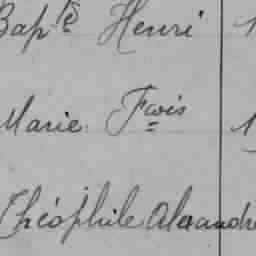 Bapte Henri 1
Marie Fcois 1
Théophile Alexandre